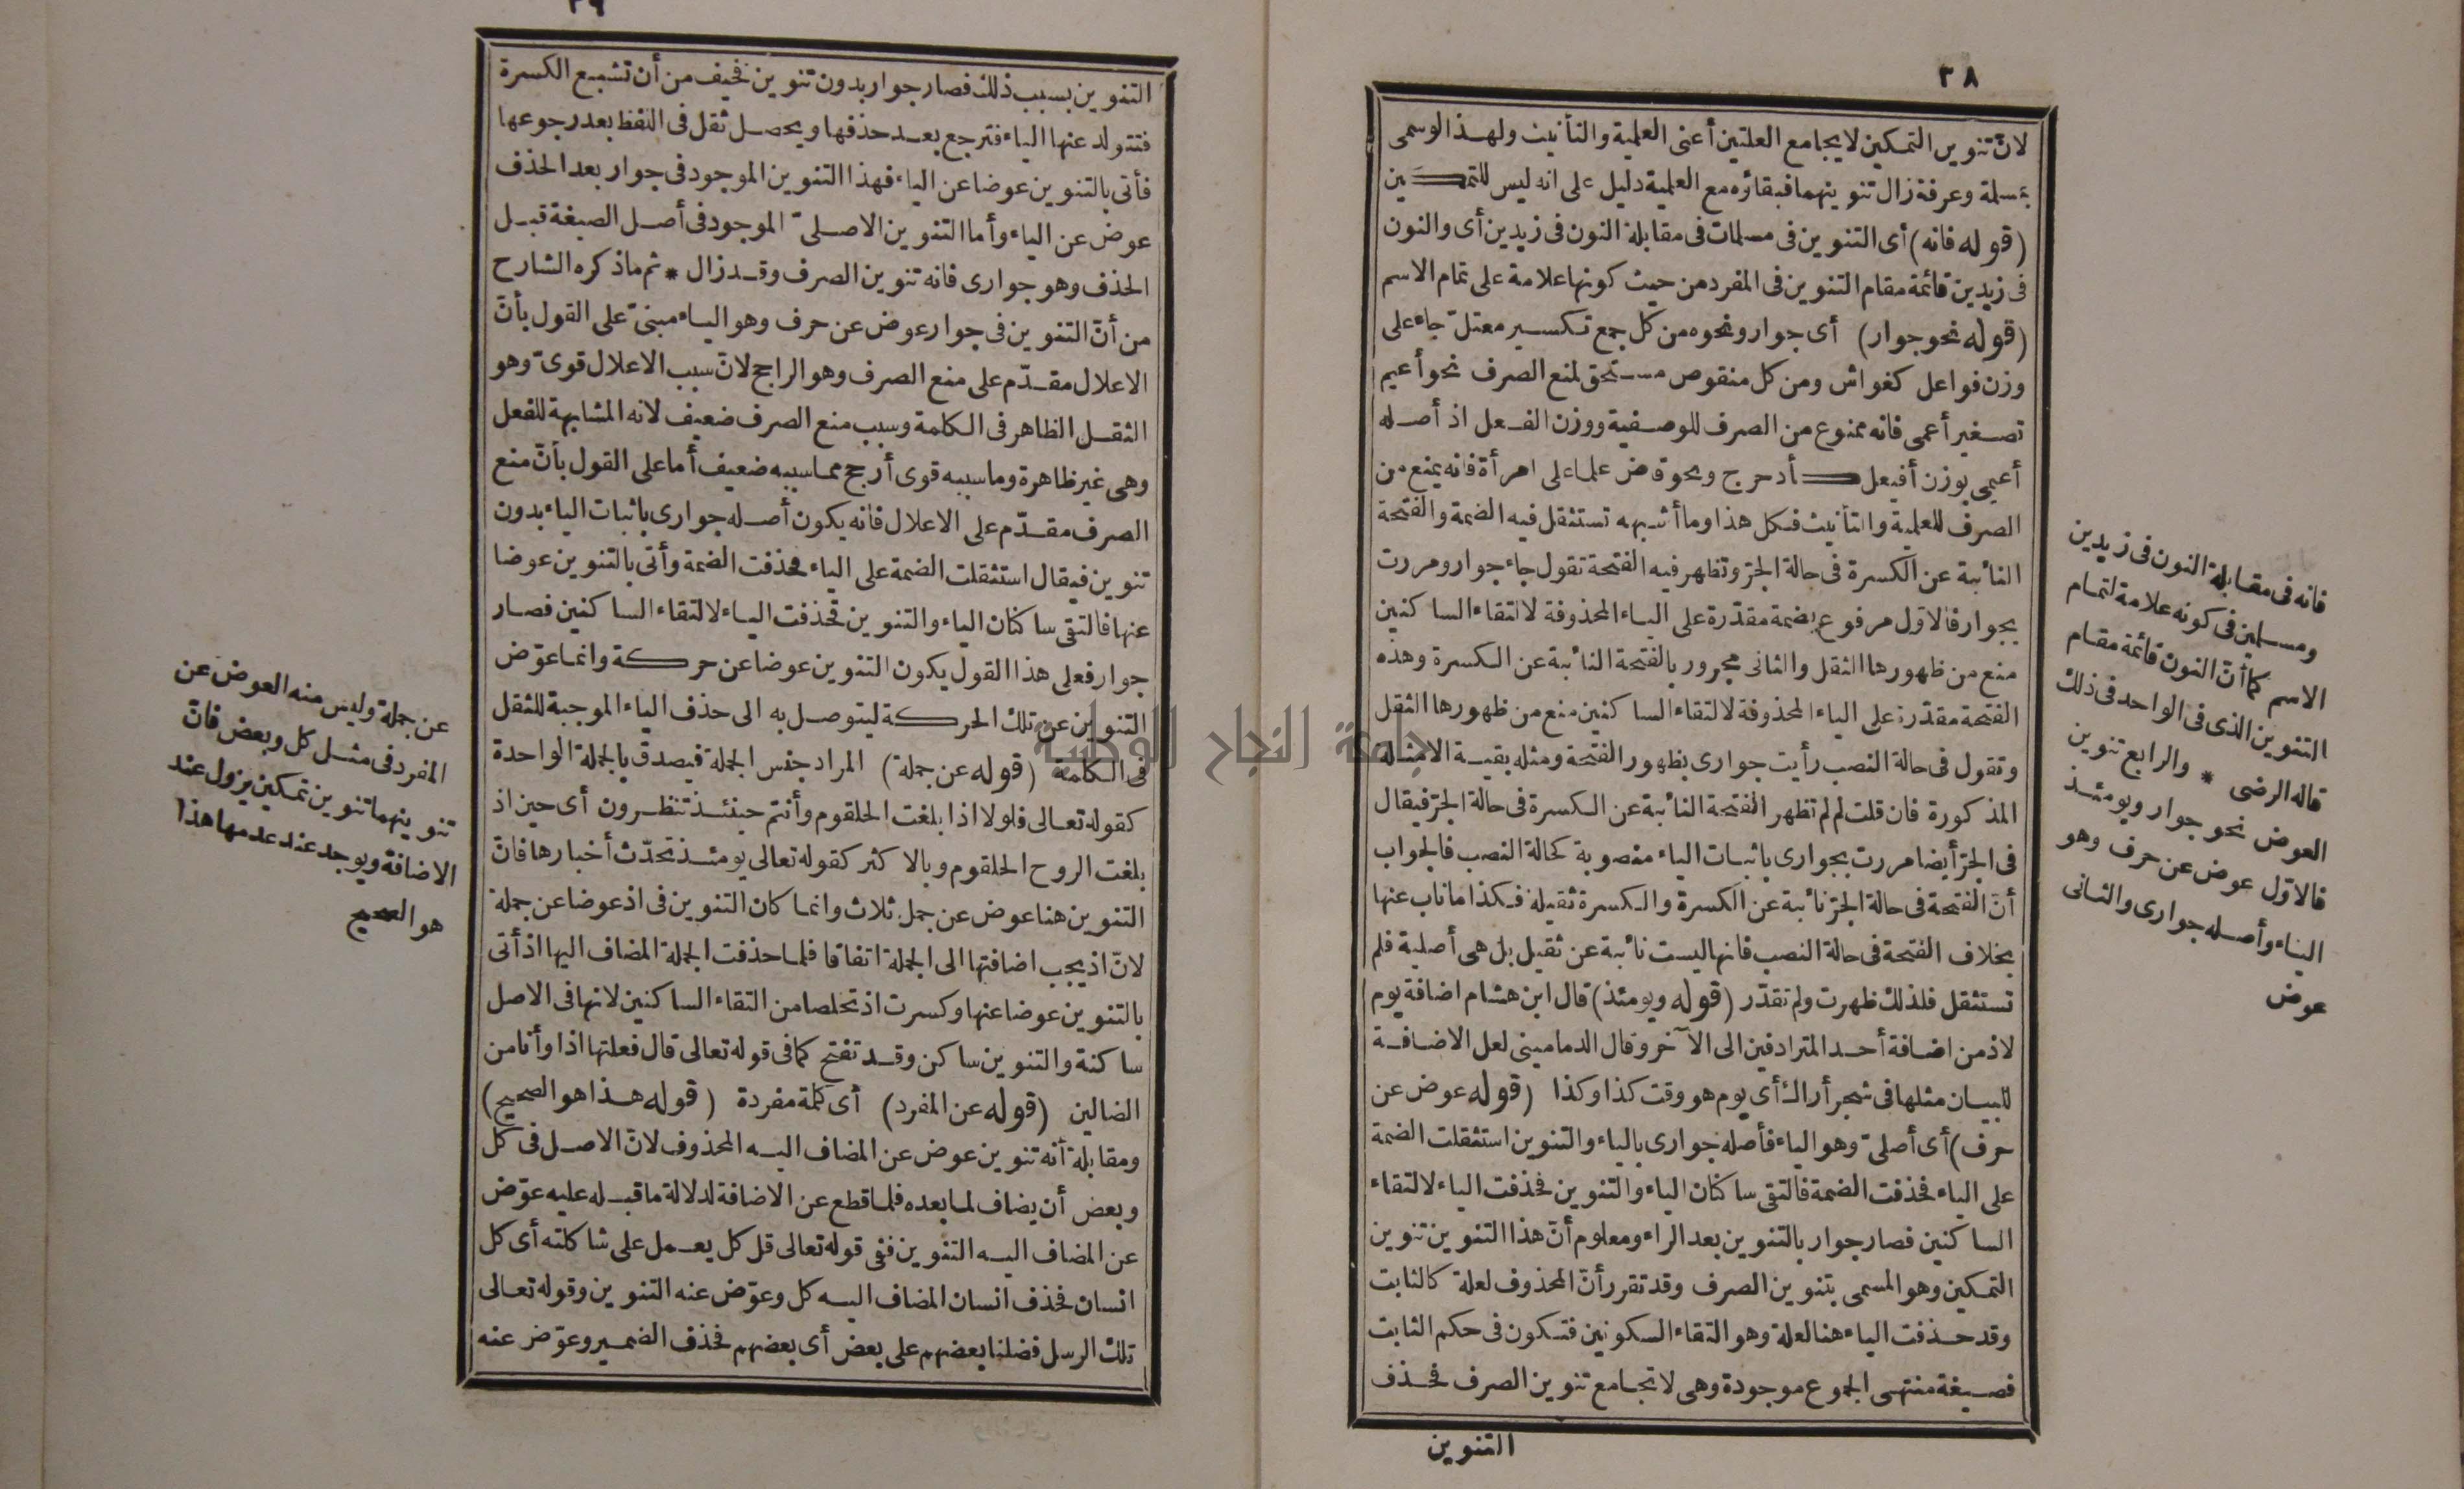 ٣٨
لانّ تنوين التمكين لا يجامع العلتين أعنى العلمية والتأنيث ولهذا لو سمى
بمسلمة وعرفة زال تنوينهما فبقاؤه مع العلمية دليل على انه ليس للتمكين
(قوله فانه) أى التنوين فى مسلمات فى مقابلة النون فى زيدين أى والنون
فى زيدين قائمة مقام التنوين فى المفرد من حيث كونها علامة على تمام الاسم
(قوله نحو جوار) أى جوار ونحوه من كل جمع تكسير معتلّ جاء على
وزن فواعل كغواش ومن كل منقوص مستحق لمنع الصرف نحو أعيم
تصغير أعمى فانه ممنوع من الصرف للوصفية ووزن الفعل اذ أصله
أعيمى بوزن أفيعل كأدحرج ونحو قاض علما على امرأة فانه يمنع من
الصرف للعلمية والتأنيث فكل هذا وما أشبهه تستثقل فيه الضمة والفتحة
النائبة عن الكسرة فى حالة الجرّ وتظهر فيه الفتحة تقول جاء جوار ومررت
بجوار فالاوّل مرفوع بضمة مقدّرة على الياء المحذوفة لالتقاء الساكنين
منع من ظهورها الثقل والثانى مجرور بالفتحة النائبة عن الكسرة وهذه
الفتحة مقدّرة على الياء المحذوفة لالتقاء الساكنين منع من ظهورها الثقل
وتقول فى حالة النصب رأيت جوارى بظهور الفتحة ومثله بقية الامثلة
المذكورة فان قلت لم لم تظهر الفتحة النائبة عن الكسرة فى حالة الجرّ فيقال
فى الجرّ أيضا مررت بجوارى باثبات الياء منصوبة كحالة النصب فالجواب
أنّ الفتحة فى حالة الجرّ نائبة عن الكسرة والكسرة ثقيلة فكذا ما ناب عنها
بخلاف الفتحة فى حالة النصب فانها ليست نائبة عن ثقيل بل هى أصلية فلم
تستثقل فلذلك ظهرت ولم تقدّر (قوله ويومئذ) قال ابن هشام اضافة يوم
لاذ من اضافة أحد المترادفين الى الآخر وقال الدمامينى لعل الاضافة
للبيان مثلها فى شجر أراك أى يوم هو وقت كذا وكذا (قوله عوض عن
حرف) أى أصلىّ وهو الياء فأصله جوارى بالياء والتنوين استثقلت الضمة
على الياء فحذفت الضمة فالتقى ساكنان الياء والتنوين فحذفت الياء لالتقاء
الساكنين فصار جوار بالتنوين بعد الراء ومعلوم أنّ هذا التنوين تنوين
التمكين وهو المسمى بتنوين الصرف وقد تقرر أنّ المحذوف لعلة كالثابت
وقد حذفت الياء هنا لعلة وهو التقاء السكونين فتكون فى حكم الثابت
فصيغة منتهى الجموع موجودة وهى لا تجامع تنوين الصرف فحذف
التنوين
فانه فى مقابلة النون فى زيدين
ومسلمين فى كونه علامة لتمام
الاسم كما أنّ النون قائمة مقام
التنوين الذى فى الواحد فى ذلك
قاله الرضى * والرابع تنوين
العوض نحو جوار ويومئذ
فالاوّل عوض عن حرف وهو
الياء وأصله جوارى والثانى
عوض
٣٩
التنوين بسبب ذلك فصار جوار بدون تنوين فخيف من أن تشبع الكسرة
فتتولد عنها الياء فترجع بعد حذفها ويحصل ثقل فى اللفظ بعد رجوعها
فأتى بالتنوين عوضا عن الياء فهذا التنوين الموجود فى جوار بعد الحذف
عوض عن الياء وأما التنوين الاصلىّ الموجود فى أصل الصيغة قبل
الحذف وهو جوارى فانه تنوين الصرف وقد زال * ثم ما ذكره الشارح
من أنّ التنوين فى جوار عوض عن حرف وهو الياء مبنىّ على القول بأنّ
الاعلال مقدّم على منع الصرف وهو الراجح لانّ سبب الاعلال قوىّ وهو
الثقل الظاهر فى الكلمة وسبب منع الصرف ضعيف لانه المشابهة للفعل
وهى غير ظاهرة وما سببه قوى أرجح مما سببه ضعيف أما على القول بأنّ منع
الصرف مقدّم على الاعلال فانه يكون أصله جوارى باثبات الياء بدون
تنوين فيقال استثقلت الضمة على الياء فحذفت الضمة وأتى بالتنوين عوضا
عنها فالتقى ساكنان الياء والتنوين فحذفت الياء لالتقاء الساكنين فصار
جوار فعلى هذا القول يكون التنوين عوضا عن حركة وانما عوّض
التنوين عن تلك الحركة ليتوصل به الى حذف الياء الموجبة للثقل
فى الكلمة (قوله عن جملة) المراد جنس الجملة فيصدق بالجملة الواحدة
كقوله تعالى فلولا اذا بلغت الحلقوم وأنتم حينئذ تنظرون أى حين اذ
بلغت الروح الحلقوم وبالاكثر كقوله تعالى يومئذ تحدّث أخبارها فانّ
التنوين هنا عوض عن جمل ثلاث وانما كان التنوين فى اذ عوضا عن جملة
لانّ اذ يجب اضافتها الى الجملة اتفاقا فلما حذفت الجملة المضاف اليها اذ أتى
بالتنوين عوضا عنها وكسرت اذ تخلصا من التقاء الساكنين لانها فى الاصل
ساكنة والتنوين ساكن وقد تفتح كما فى قوله تعالى قال فعلتها اذا وأنا من
الضالين (قوله عن المفرد) أى كلمة مفردة (قوله هذا هو الصحيح)
ومقابله أنه تنوين عوض عن المضاف اليه المحذوف لانّ الاصل فى كل
وبعض أن يضاف لما بعده فلما قطع عن الاضافة لدلالة ما قبله عليه عوّض
عن المضاف اليه التنوين ففى قوله تعالى قل كل يعمل على شاكلته أى كل
انسان فحذف انسان المضاف اليه كل وعوّض عنه التنوين وقوله تعالى
تلك الرسل فضلنا بعضهم على بعض أى بعضهم فحذف الضمير وعوّض عنه
عن جملة وليس منه العوض عن
المفرد فى مثل كل وبعض فانّ
تنوينهما تنوين تمكين يزول عند
الاضافة ويوجد عند عدمها هذا
هو الصحيح
جامعة النجاح الوطنية